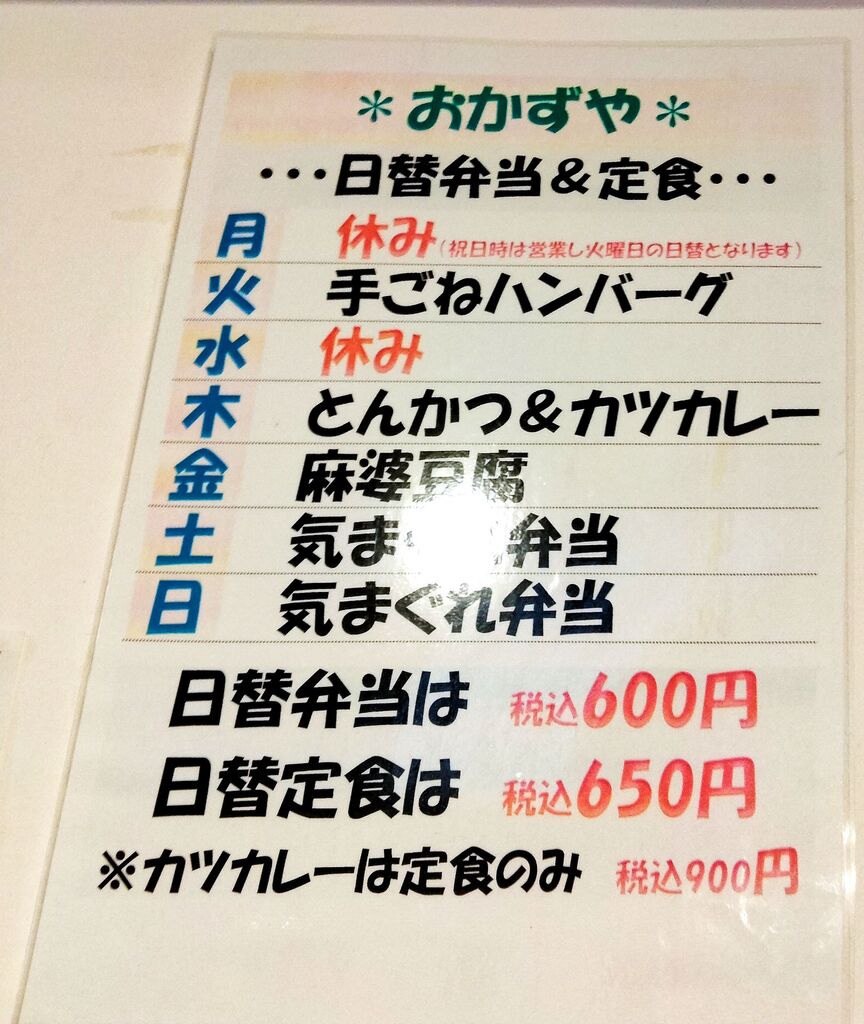 ＊おかずや＊
･･･日替弁当＆定食･･･
月 休み（祝日時は営業し火曜日の日替となります）
火 手ごねハンバーグ
水 休み
木 とんかつ＆カツカレー
金 麻婆豆腐
土 気ま 弁当
日 気まぐれ弁当
日替弁当は 税込600円
日替定食は 税込650円
※カツカレーは定食のみ 税込900円